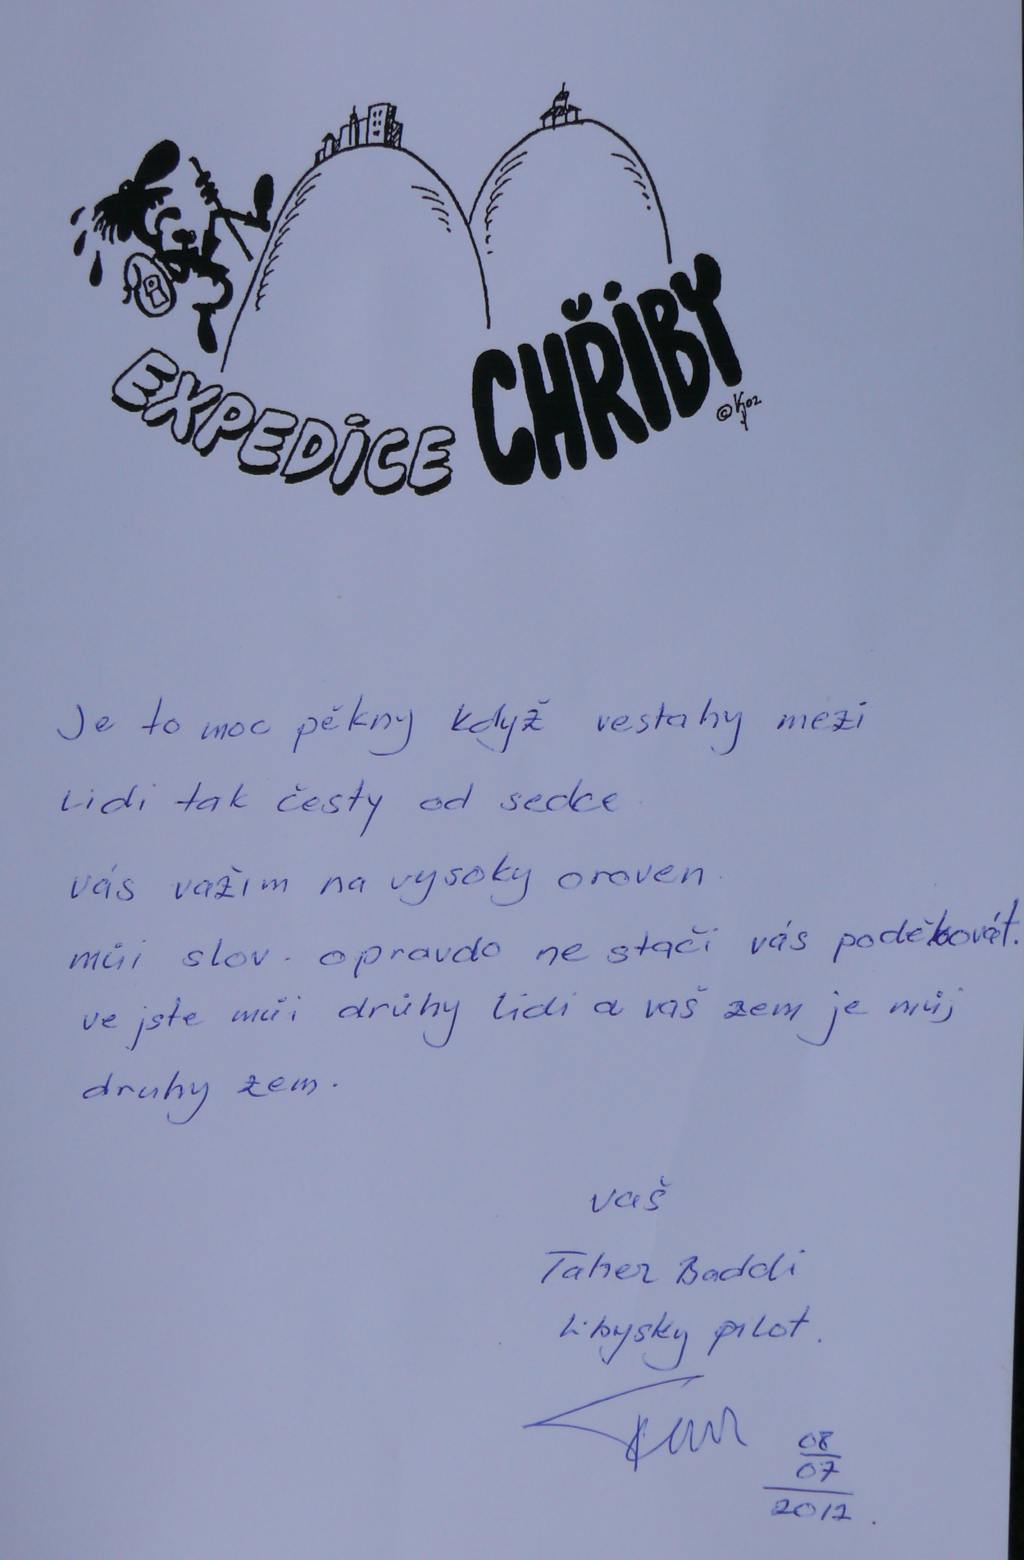 EXPEDICE CHŘIBY
Je to moc pěkny když vestahy mezi
Lidi tak česty od sedce
vás važim na vysoky oroven.
můi slov. opravdo ne stači vás poděkovát.
ve jste můi drůhy Lidi a vaš zem je můj
druhy zem.
vaš
Taher Baddi
Libysky pilot.
08
07
2012.